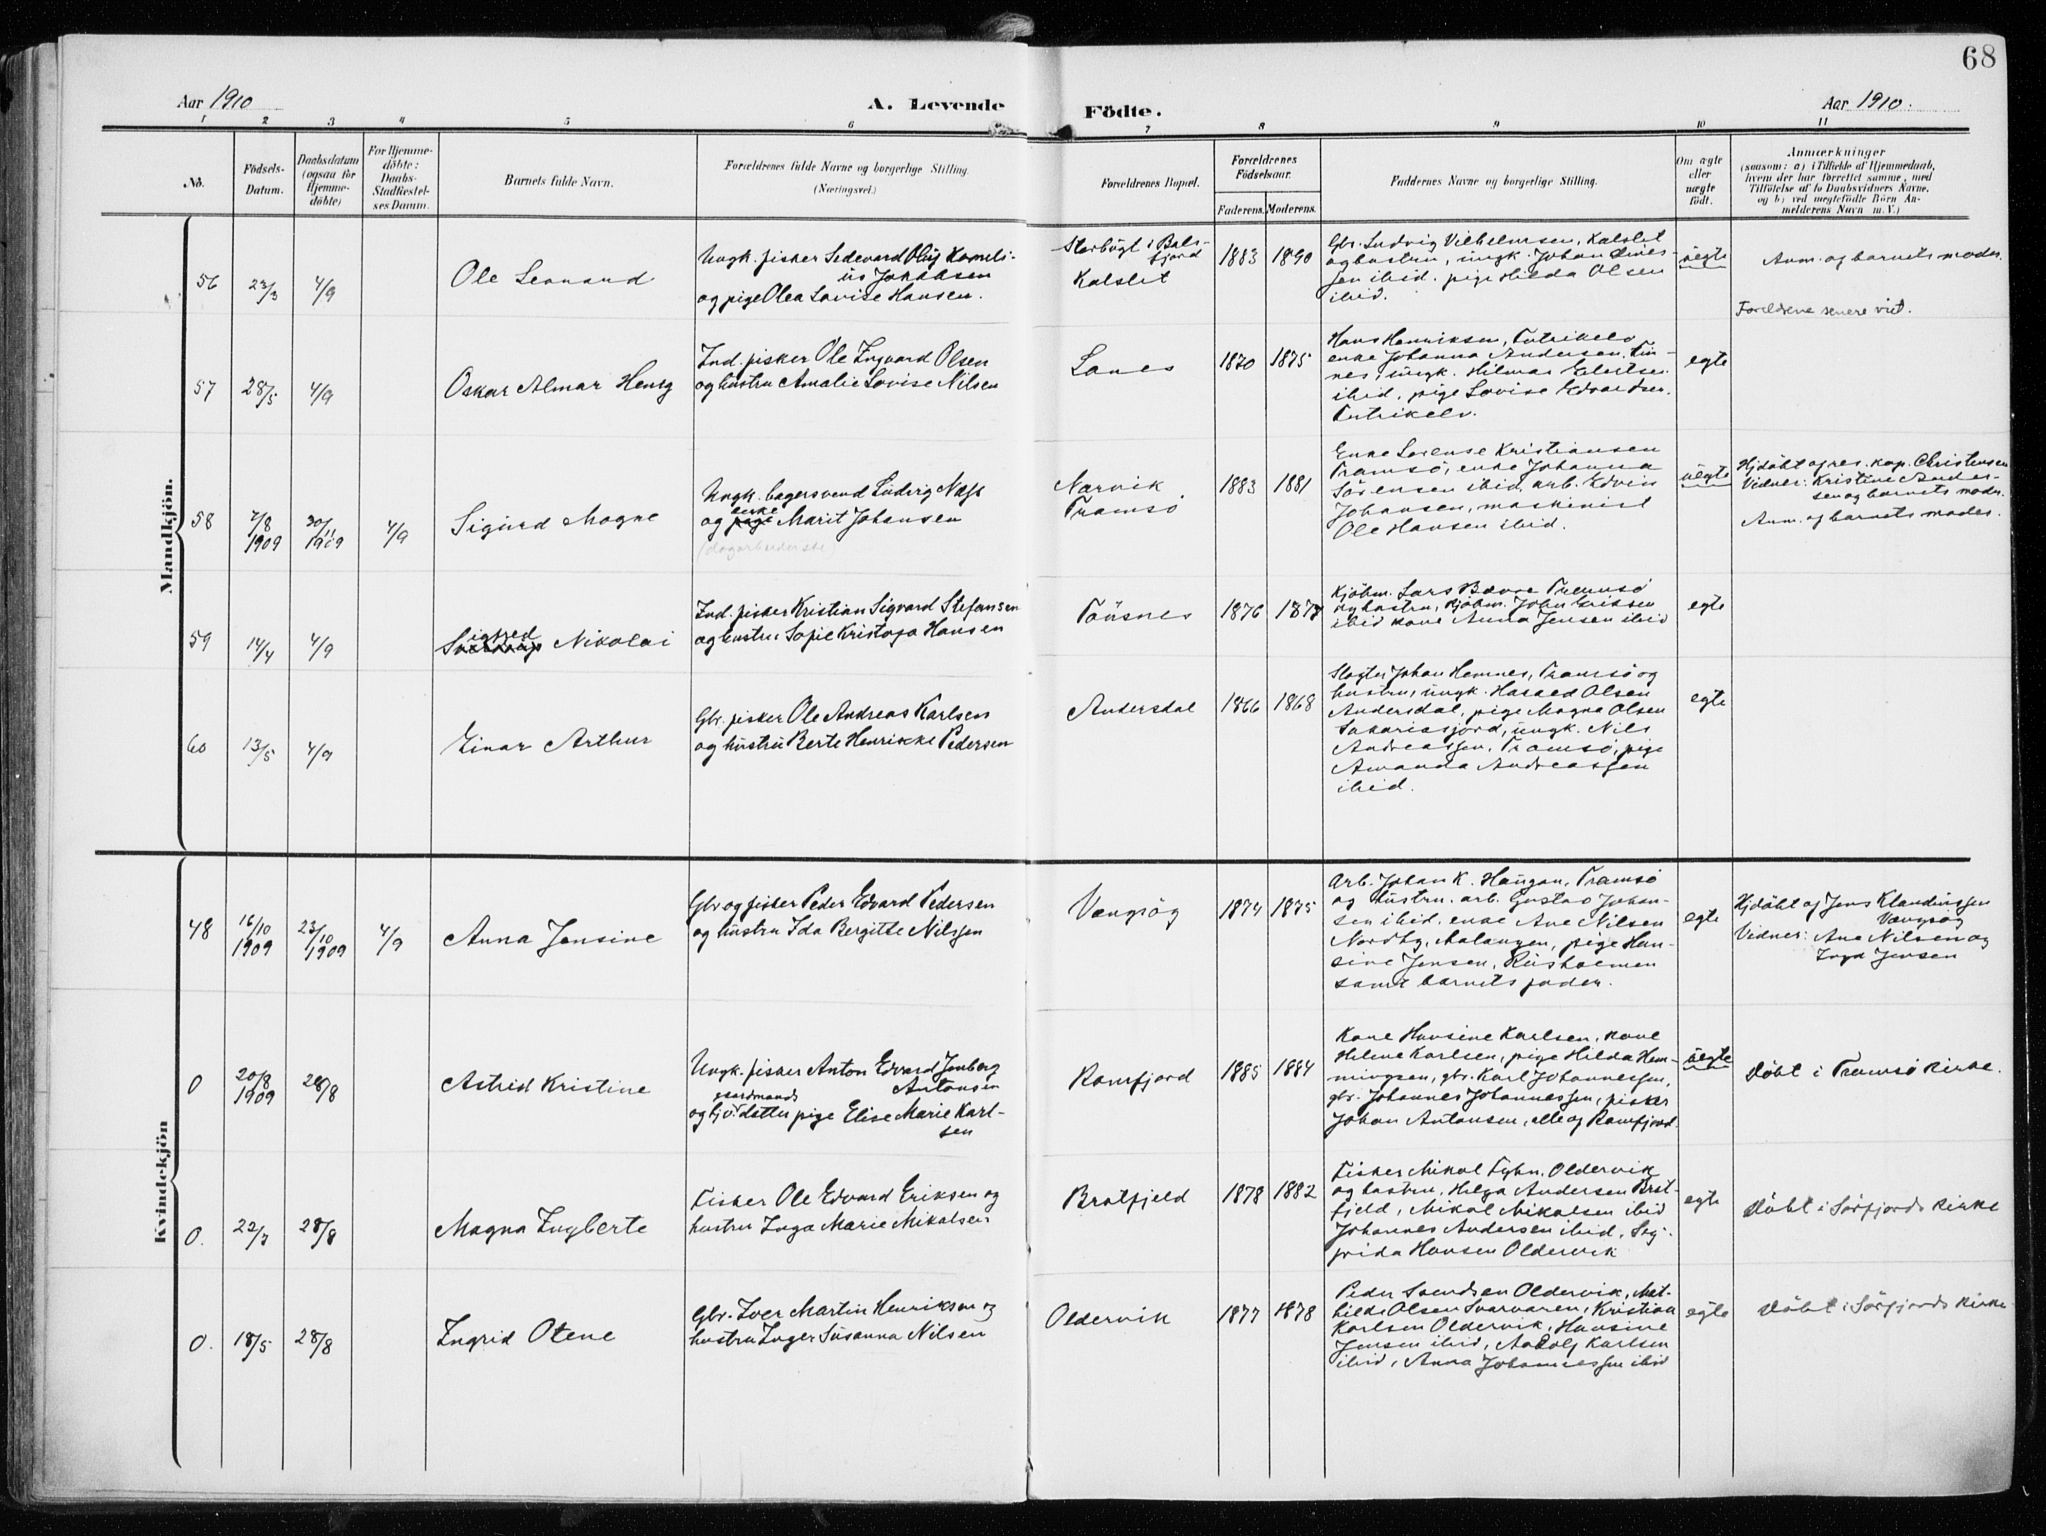 68
Aar 1910
A. Levende
Födte.
Aar 1910.
1 2 3 4 5 6 7 8 9 10 11
No.
Födsels-
Datum.
Daabsdatum
(ogsaa for
Hjemme-
döbte)
For Hjemme-
döbte:
Daabs-
Stadfæstel-
ses Datum.
Barnets fulde Navn.
Forældrenes fulde Navne og borgerlige Stilling.
(Næringsvei.)
Forældrenes Bopæl.
Forældrenes
Födselsaar.
Faderens.
Moderens.
Faddernes Navne og borgerlige Stilling.
Om ægte
eller
uægte
födt.
Anmærkninger
(saasom: a) i Tilfælde af Hjemmedaab,
hvem der har forrettet samme, med
Tilföielse af to Daabsvidners Navne,
og b) ved uægtefödte Börn An-
melderens Navn m. V.)
Mandkjön.
56
23/3
4/9
Ole Leonard
Ungk. fisker Sedevard Oluf Korneli-
us Jakobsen
og pige Olea Lovise Hansen.
Storbugt i Bals-
fjord
Kalslet
1883
1890
Gbr. Ludvig Vilhelmsen, Kalslet
og hustru, ungk. Johan
sen ibid. pige Hilda Olsen
ibid.
uegte
Anm. og barnets moder.
Foreldrene senere viet.
57
28/5
4/9
Oskar Almar Henry
Ind. fisker Ole Ingvard Olsen
og hustru Amalie Lovise Nilsen
Lanes
1870
1875
Hans Henriksen, Tutrikelv
enke Johanna Andersen, Tin-
nes, ungk. Hilmar Ebertsen
ibid, pige Lovise Edvardsen.
Tutrikelv.
egte
58
7/8
1909
30/11
1909
4/9
Sigurd Magne
Ungk. bagersvend Ludvig Næss
enke
og pige Marit Johansen
(dagarbeiderske)
Narvik.
Tromsø
1883
1881
Enke Lorense Kristiansen
Tromsø, enke Johanna
Sörensen ibid, arb. Edvin
Johansen, maskinist
Ole Hansen ibid.
uegte
Hjdøbt af res. kap. Christensen
Vidner: Kristine Ander-
sen og barnets moder.
Anm. og barnets moder.
59
14/4
4/9
igfred
Nikolai
Ind. fisker Kristian Sigvard Stefansen
og hustru Sofie Kristofa Hansen
Tönsnes
1876
1878
Kjöbm. Lars Bævre Tromsø
og hustru, kjöbm. John Eriksen
ibid kone Anna Jensen ibid
egte
60
13/5
4/9
Einar Arthur
Gbr. fisker Ole Andreas Karlsen
og hustru Berte Henrikke Pedersen
Andersdal
1866
1868
Slagter Johan Hemnes, Tromsö og
hustru, ungk. Harald Olsen
Andersdal, pige Magna Olsen
Sakariasfjord, ungk. Nils
Andreassen, Tromsö, pige
Amanda Andreassen
ibid.
egte
Kvindekjön
48
16/10
1909
23/10
1909
4/9
Anna Jensine
Gbr og fisker Peder Edvard Pedersen
og hustru Ida Bergitte Nilssen
Vængsøg
1874
1875
Arb. Johan K. Haugan, Tromsö
og hustru. arb. Gustav Johan-
sen ibid. enke Ane Nilsen
Nordby, Malangen, pige Han-
sine Jensen, Risholmen
samt barnets fader.
egte
Hjdøbt af Jens Klaudiussen
Vængsøg
Vidner: Ane Nilsen og
Inga Jensen
0
20/8
1909
28/8
Astrid Kristine
Ungk. fisker Anton Edvard Jenberg
Antonsen
gaardmands
og datter pige Elise Marie Karl-
sen
Ramfjord
1885
1884
Kone Hansine Karlsen, kone
Heline Karlsen, pige Hilda Hem-
mingsen, gbr. Karl Johannessen,
gbr. Johannes Johannessen, fisker
Johan Antonsen, alle af Ramfjord
uegte
Døbt i Tromsø kirke.
0.
22/7
28/8
Magna Ingberte
Fisker Ole Edvard Eriksen og
hustru Inga Marie Mikalsen
Bratfjeld
1878
1882
Fisker Mikal Fyhn, Oldervik
og hustru, Helga Andersen Brat-
fjeld, Mikal Mikalsen ibid
Johannes Andersen ibid, Sig-
frida Hansen Oldervik
egte
Døbt i Sørfjords kirke
0.
18/5
28/8
Ingrid Otene
Gbr. Iver Martin Henriksen og
hustru Inger Susanna Nilsen
Oldervik
1877
1878
Peder Svendsen Oldervik, Mat-
hilde Olsen Svarvaren, Kristian
Karlsen Oldervik, Hansine
Jensen ibid, Adolf Karlsen
ibid, Anna Johannessen ibid
egte
Døbt i Sørfjords kirke